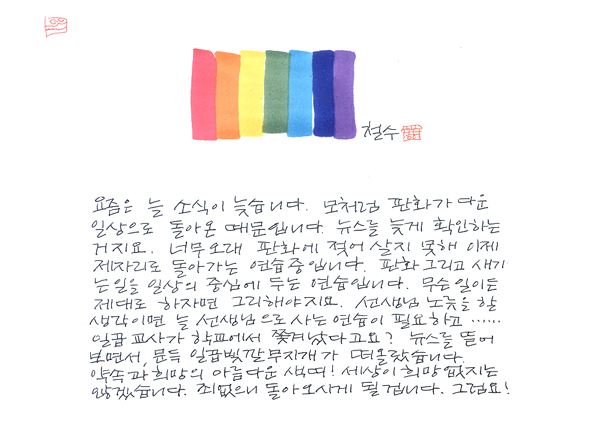 철수
요즘은 늘 소식이 늦습니다. 모처럼 판화가다운
일상으로 돌아온 때문입니다. 뉴스를 늦게 확인하는
거지요. 너무 오래 판화에 적어 살지 못해 이제
제자리로 돌아가는 연습중입니다. 판화 그리고 새기
는 일을 일상의 중심에 두는 연습입니다. 무슨 일이든
제대로 하자면 그리해야지요. 선생님 노릇을 할
생각이면 늘 선생님으로 사는 연습이 필요하고 ......
일곱 교사가 학교에서 쫓겨났다고요? 뉴스를 뜯어
보면서, 문득 일곱빛깔 무지개가 떠올랐습니다.
약속과 희망의 아름다운 색띠! 세상이 희망 없지는
않겠습니다. 죄없으니 돌아오시게 될겁니다. 그럼요!